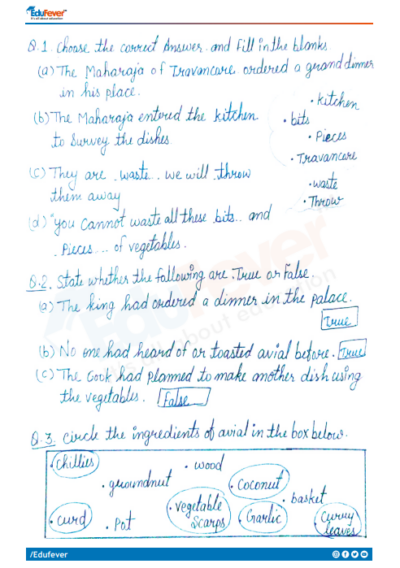 Edufever
Q.1. Choose the correct Answer. and Fill in the blanks.
(a) The Maharaja of Travancare ordered a grand dinner
in his place.
• kitchen
(b) The Maharaja entered the kitchen.
• bits
to Survey the dishes.
• Pieces
• Travancare
(c) They are .waste. we will throw
• waste
them away
• Throw
(d) "you cannot waste all these bits.. and
. Pieces.... of vegetables.
Q.2. State whether the following are .True or False.
(a) The king had ordered a dinner in the palace.
True
(b) No one had heard of or toasted avial before. True
(c) The Cook had planned to make another dish using
the vegetables. False
Q.3. circle the ingredients of avial in the box below.
Chillies
• wood
• groundnut
• Coconut
• basket
• curd
• Pot
• vegetable
Scarps
• Garlic
• Curry
leaves
/Edufever